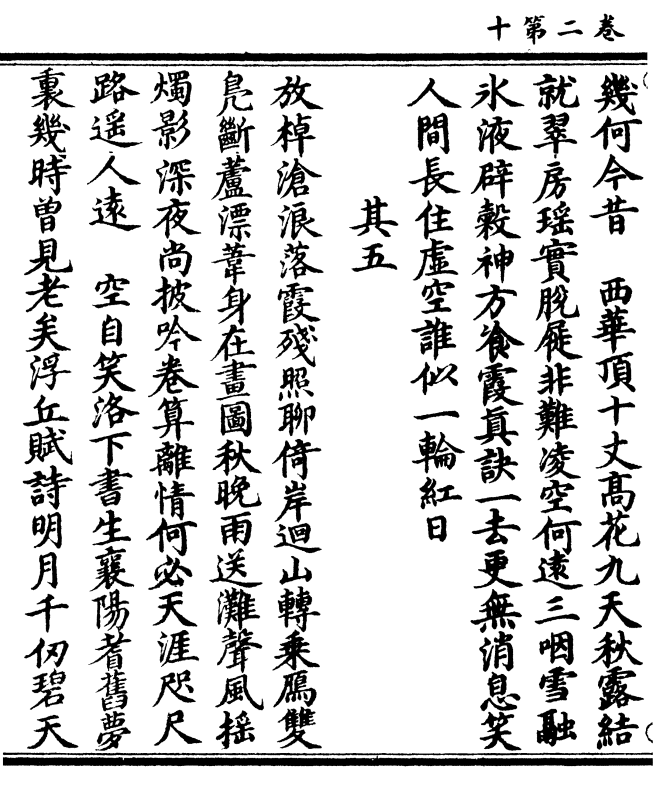 卷二第十
幾何今昔　西華頂十丈高花九天秋露結
就翠房瑶實脫屣非難凌空何遠三咽雪融
氷液辟穀神方飡霞眞訣一去更無消息笑
人間長住虛空誰似一輪紅日
其五
放棹滄浪落霞殘照聊倚岸迴山轉乗鴈雙
鳧斷蘆漂葦身在畫圖秋晚雨送灘聲風揺
燭影深夜尚披吟卷算離情何必天涯咫尺
路遥人遠　空自笑洛下書生襄陽耆舊夢
裏幾時曾見老矣浮丘賦詩明月千仞碧天